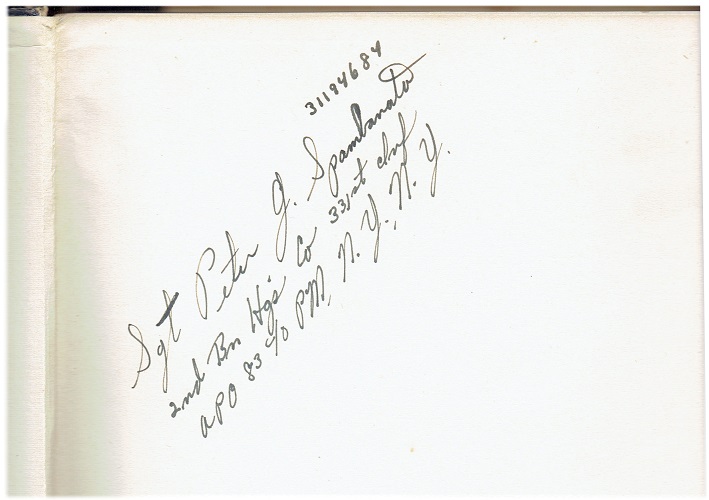 31194684
Sgt Peter J. Spambanato
2nd Bn Hqs Co 331st Inf
APO 83 c/o PM, N.Y., N.Y.